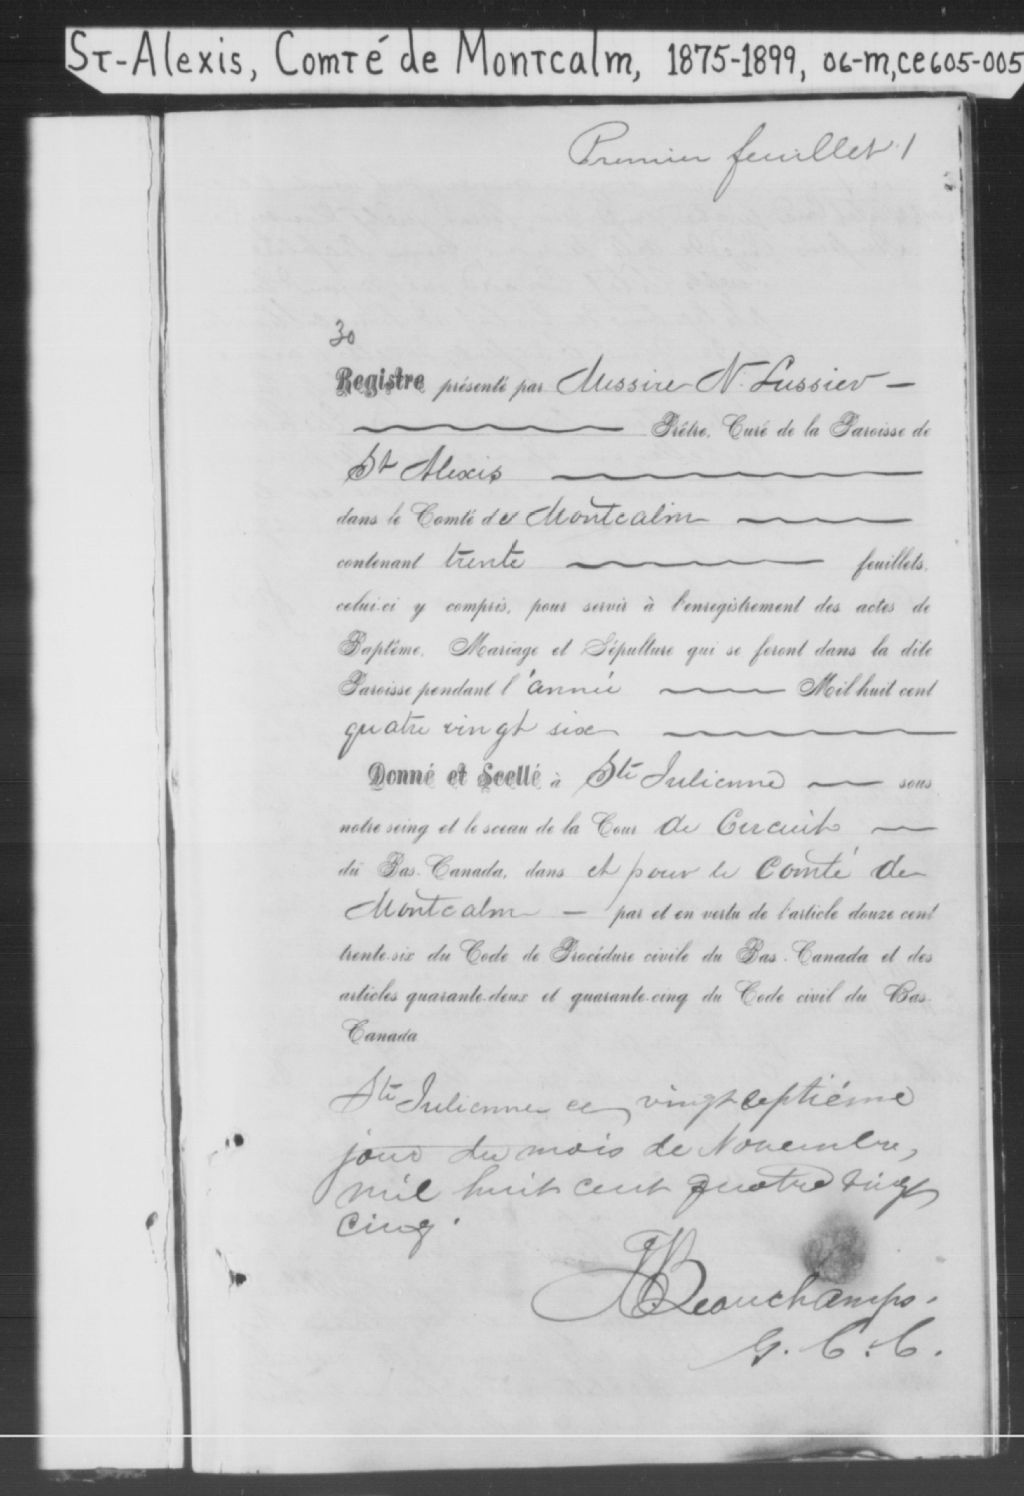 St-Alexis, Comté de Montcalm, 1875-1899, 06-M,CE605-005
Premier feuillet 1
30
Registre présenté par Messire N. Lussier
Prêtre, Curé de la Paroisse de
St Alexis
dans le Comté de Montcalm
contenant trente feuillets,
celui-ci y compris, pour servir à l'enregistrement des actes de
Baptême, Mariage et Sépulture qui se feront dans la dite
Paroisse pendant l'année Mil huit cent
quatre vingt six
Donné et Scellé à Ste Julienne sous
notre seing et le sceau de la Cour de Circuit
du Bas-Canada, dans et pour le Comté de
Montcalm par et en vertu de l'article douze cent
trente-six du Code de Procédure civile du Bas-Canada et des
articles quarante-deux et quarante-cinq du Code civil du Bas-
Canada
Ste Julienne ce vingt septiéme
jour du mois de Novembre,
mil huit cent quatre vingt
cinq.
Beauchamps.
G. C. C.